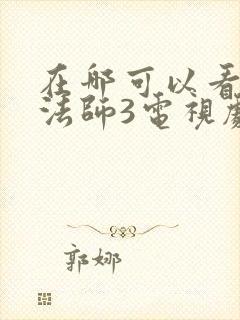 在哪可以看
法師3電視劇
郭娜